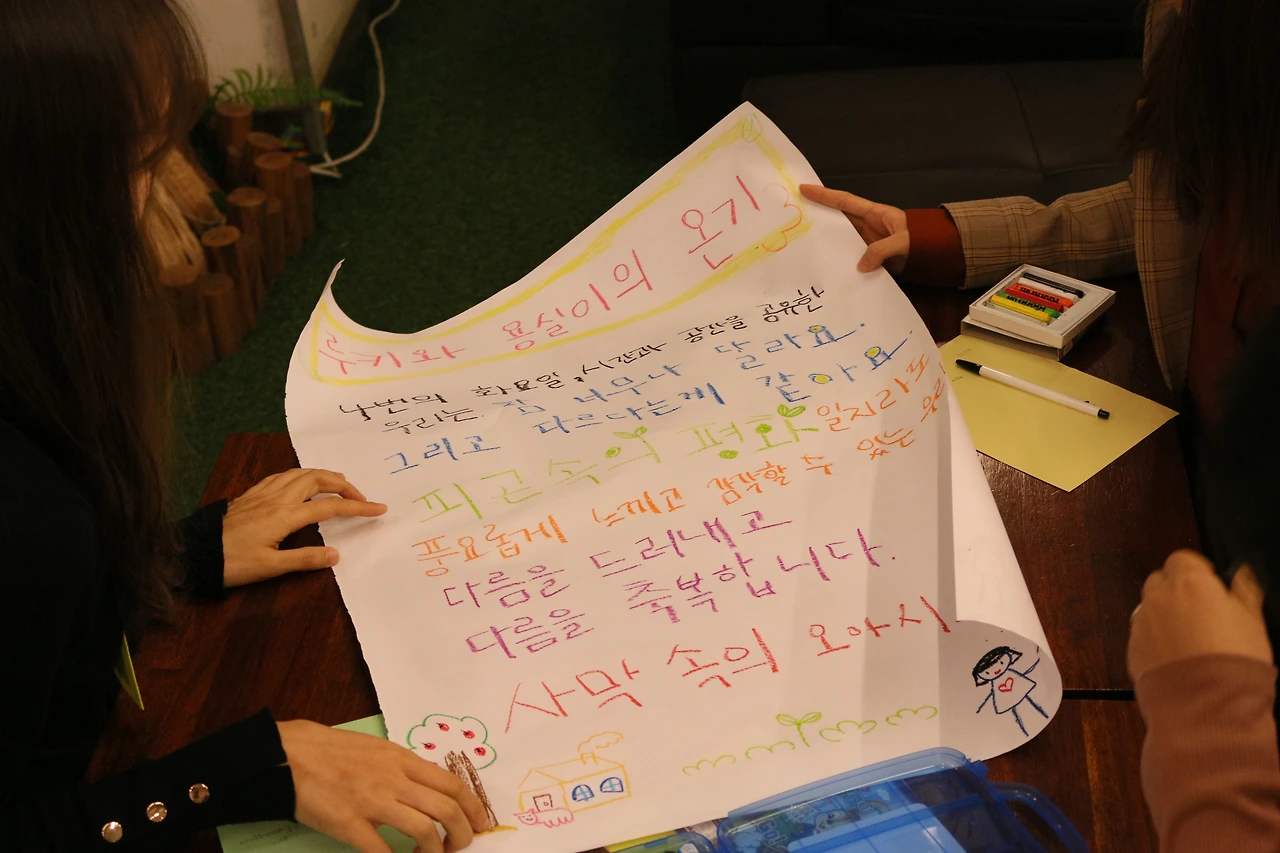 루키와 용실이의 온기
4번의 화요일, 시간과 공간을 공유한
우리는 참 너무나 달라요.
그리고 다르다는게 같아요
피곤속의 평화 일지라도
풍요롭게 느끼고 감각할 수 있는 우리
다름을 드러내고
다름을 축복합니다.
사막 속의 오아시